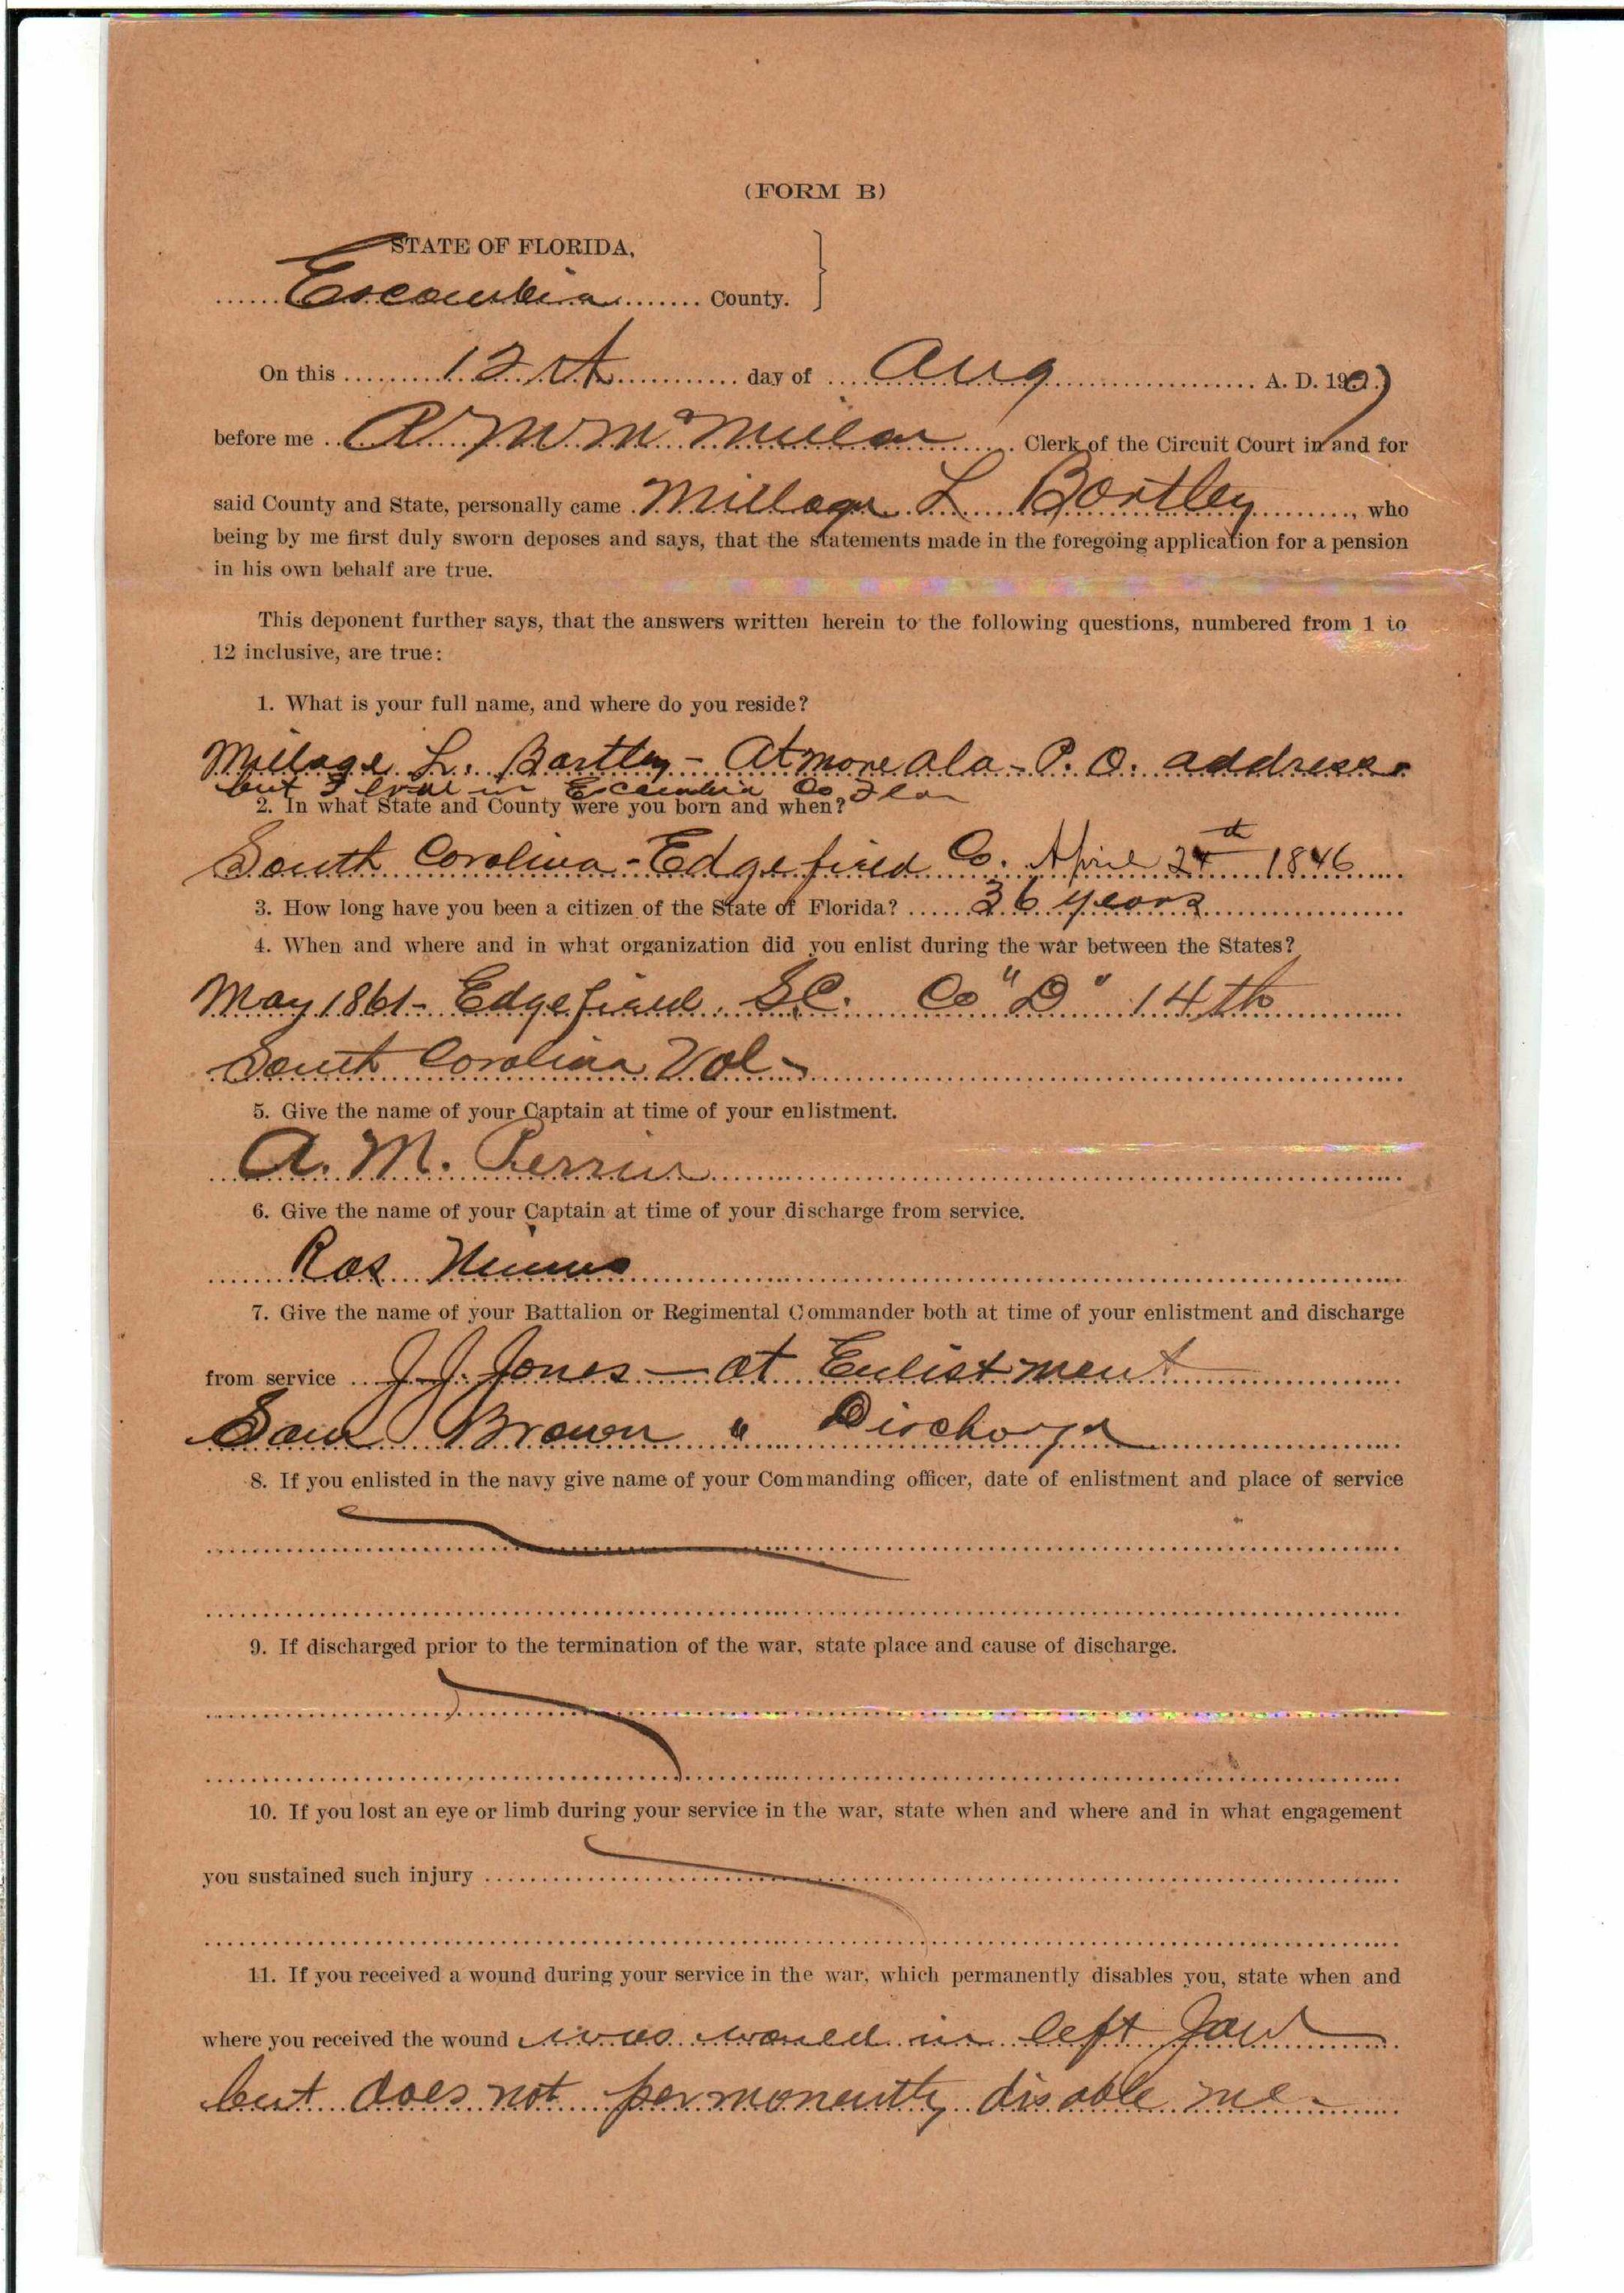 (FORM B)
STATE OF FLORIDA,
Escambia County.
On this 12th day of Aug A. D. 1907
before me A M McMillan Clerk of the Circuit Court in and for
said County and State, personally came Millage L Bartley, who
being by me first duly sworn deposes and says, that the statements made in the foregoing application for a pension
in his own behalf are true.
This deponent further says, that the answers written herein to the following questions, numbered from 1 to
12 inclusive, are true:
1. What is your full name, and where do you reside?
Millage L. Bartley - Atmore Ala - P. O. address
but I live in Escambia Co Fla
2. In what State and County were you born and when?
South Carolina - Edgefield Co. April 24th 1846
3. How long have you been a citizen of the State of Florida? 36 years
4. When and where and in what organization did you enlist during the war between the States?
May 1861 - Edgefield S.C. Co "D" 14th
South Carolina Vol -
5. Give the name of your Captain at time of your enlistment.
A. M. Perrin
6. Give the name of your Captain at time of your discharge from service.
Ros
7. Give the name of your Battalion or Regimental Commander both at time of your enlistment and discharge
from service J. J. Jones - at Enlistment
Sam Brown " Discharge
8. If you enlisted in the navy give name of your Commanding officer, date of enlistment and place of service
9. If discharged prior to the termination of the war, state place and cause of discharge.
10. If you lost an eye or limb during your service in the war, state when and where and in what engagement
you sustained such injury
11. If you received a wound during your service in the war, which permanently disables you, state when and
where you received the wound was woued in left Jaw
but does not permanently disable me -